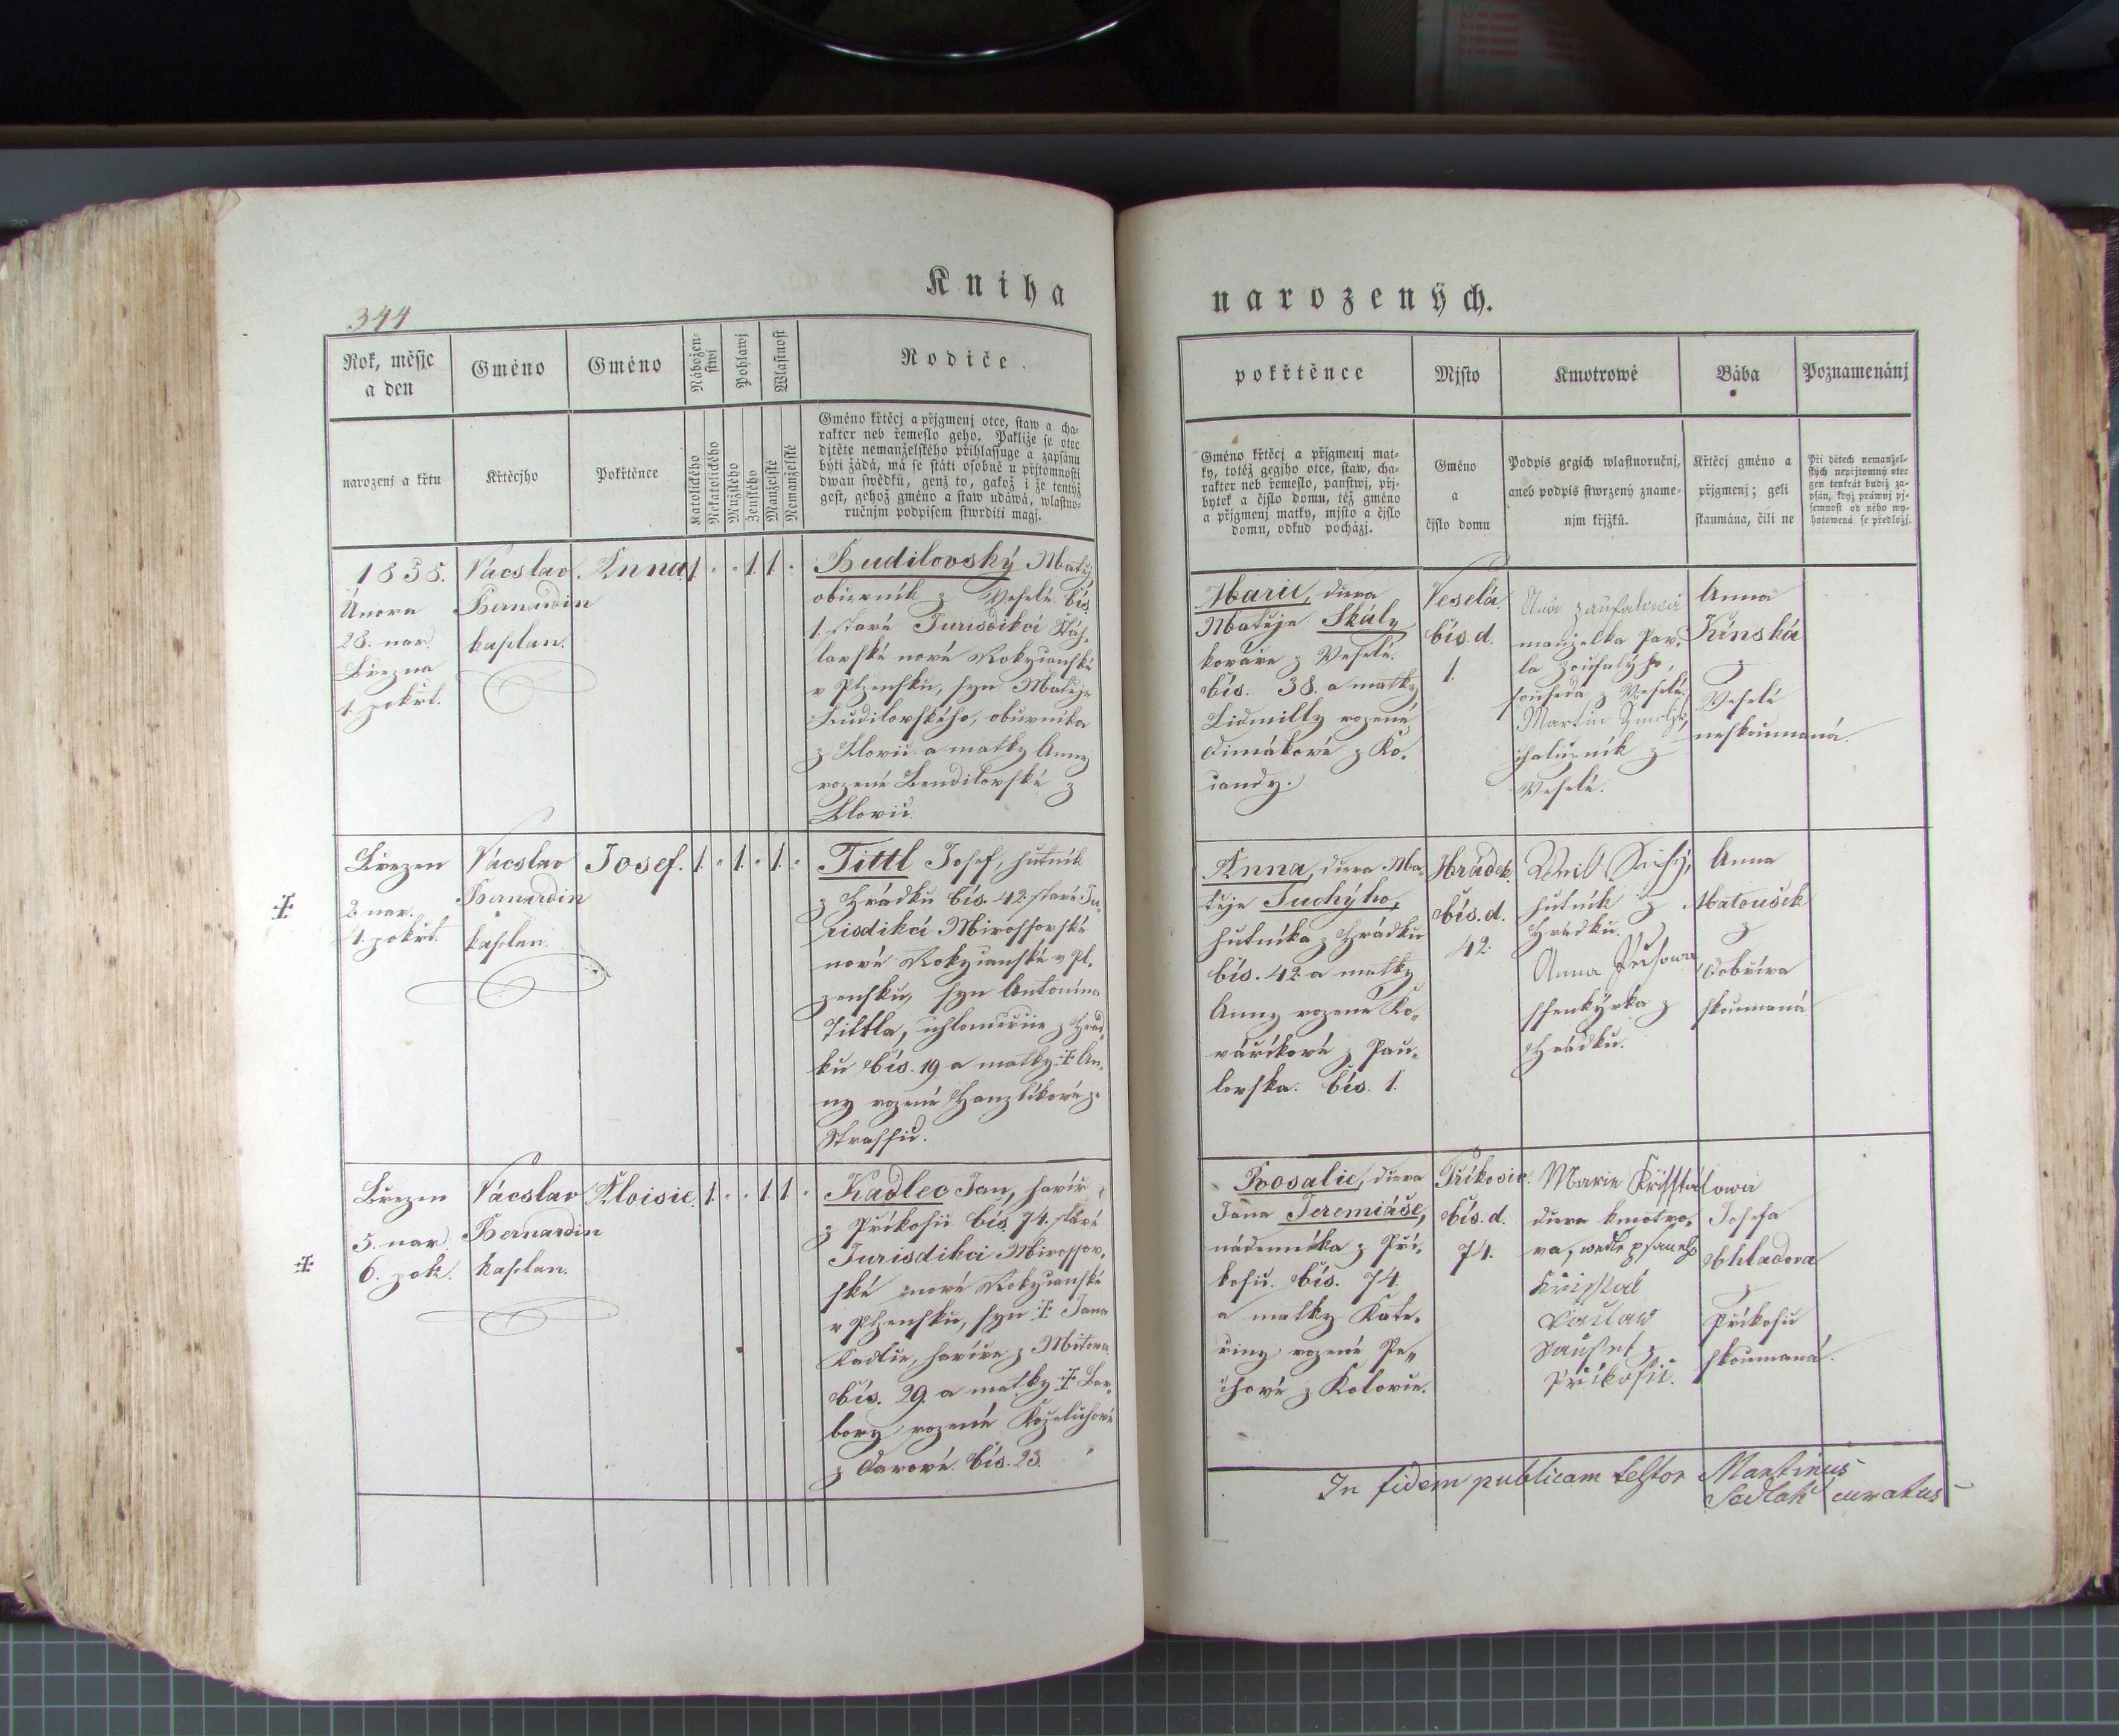 344
Kniha
narozených.
Rok, měsjc
a den
Gméno
Gméno
Nábožen-
stwj
Pohlawj
Wlastnost
Rodiče.
narozenj a křtu
Křtěcjho
Pokřtěnce
Katolického
Nekatolického
Mužského
Ženského
Manželské
Nemanželské
Gméno křtěcj a přjgmenj otce, staw a cha-
rakter neb řemeslo geho. Pakliže se otec
djtěte nemanželského přihlassuge a zapsánu
býti žádá, má se státi osobně u přjtomnosti
dwau swědků, genž to, gakož i že tentýž
gest, gehož gméno a staw udáwá, wlastno-
ručnjm podpisem stwrditi magj.
pokřtěnce
Mjsto
Kmotrowé
Bába
Poznamenánj
Gméno křtěcj a přjgmenj mat-
ky, totéž gegjho otce, staw, cha-
rakter neb řemeslo, panstwj, přj-
bytek a čjslo domu, též gméno
a přjgmenj matky, mjsto a čjslo
domu, odkud pocházj.
Gméno
a
čjslo domu
Podpis gegich wlastnoručnj,
aneb podpis stwrzený zname-
njm křjžků.
Křtěcj gméno a
přjgmenj; geli
skaumána, čili ne
Při dětech nemanžel-
ských nepřjtomný otec
gen tenkrát budiž za-
psán, když práwnj pj-
semnost od něho wy-
hotowená se předložj.
1858.
Února
28. nar.
Března
1. pokřt.
Vácslav
Bernardin
kaplan.
Anna
1 · · 1 1 ·
Budilovský Matěj
obuvník z Veselé čís.
1. staré Jurisdikci Šťáh-
lavské nové Rokycanské
v Plzensku, syn Matěje
Budilovského, obuvníka
a matky Anny
rozené z
Marie, dcera
Matěje Skály
kováře z Veselé
čís. 38. a matky
Lidmilly rozené
z Ko-
candy.
Veselá
čís. d.
1.
manželka Pav-
la
souseda z Veselé.
Martin
chalupník z
Veselé.
Anna
Kínská
z
Veselé
neskoumaná.
Březen
2. nar.
4. pokřt.
Vácslav
Bernardin
kaplan.
Josef.
1. · 1. · 1. ·
Tittl Josef, hutník
z Hrádku čís. 42. staré Ju-
risdikcí Mirossovské
nové Rokycanské v Pl-
zensku, syn Antonína
Tittla, z Hrád-
ku čís. 19 a matky ‡ An-
ny rozené Hanzlíkové z
Strassic.
Anna, dcera Ma-
těje Suchýho,
hutníka z Hrádku
čís. 42. a matky
Anny rozené Ko-
váříkové z Pau-
lovska. čís. 1.
Hrádek.
čís. d.
42.
Suchý,
hutník z
Hrádku.
Anna
ssenkýrka z
Hrádku.
Anna
Matoušek
z
Dobříva
skoumaná
Březen
5. nar.
6. pok.
Vácslav
Bernardin
kaplan.
Aloisie.
1. · · 1 1 ·
Kadlec Jan, havíř
z Příkosic čís. 74. staré
Jurisdikci Mirossov-
ské nové Rokycanské
v Plzensku, syn ‡ Jana
Kadlce, havíře z Mitova
čís. 29. a matky ‡ Bar-
bory rozené Koželuhové
z čís. 23.
Rosalie, dcera
Jana Jeremiáše,
nádenníka z Pří-
kosic. čís. 74.
a matky Kate-
řiny rozené Pe-
chové z Kolovie.
Příkosic.
čís. d.
74.
Marie Krisstálowa
dcera kmotro-
va, wedle psaneho
Krisstal
Václaw
z
Příkosic.
Josefa
Chladova
z
Příkosic
skoumaná.
In fidem publicam testor Martinus
Sedlak curatus